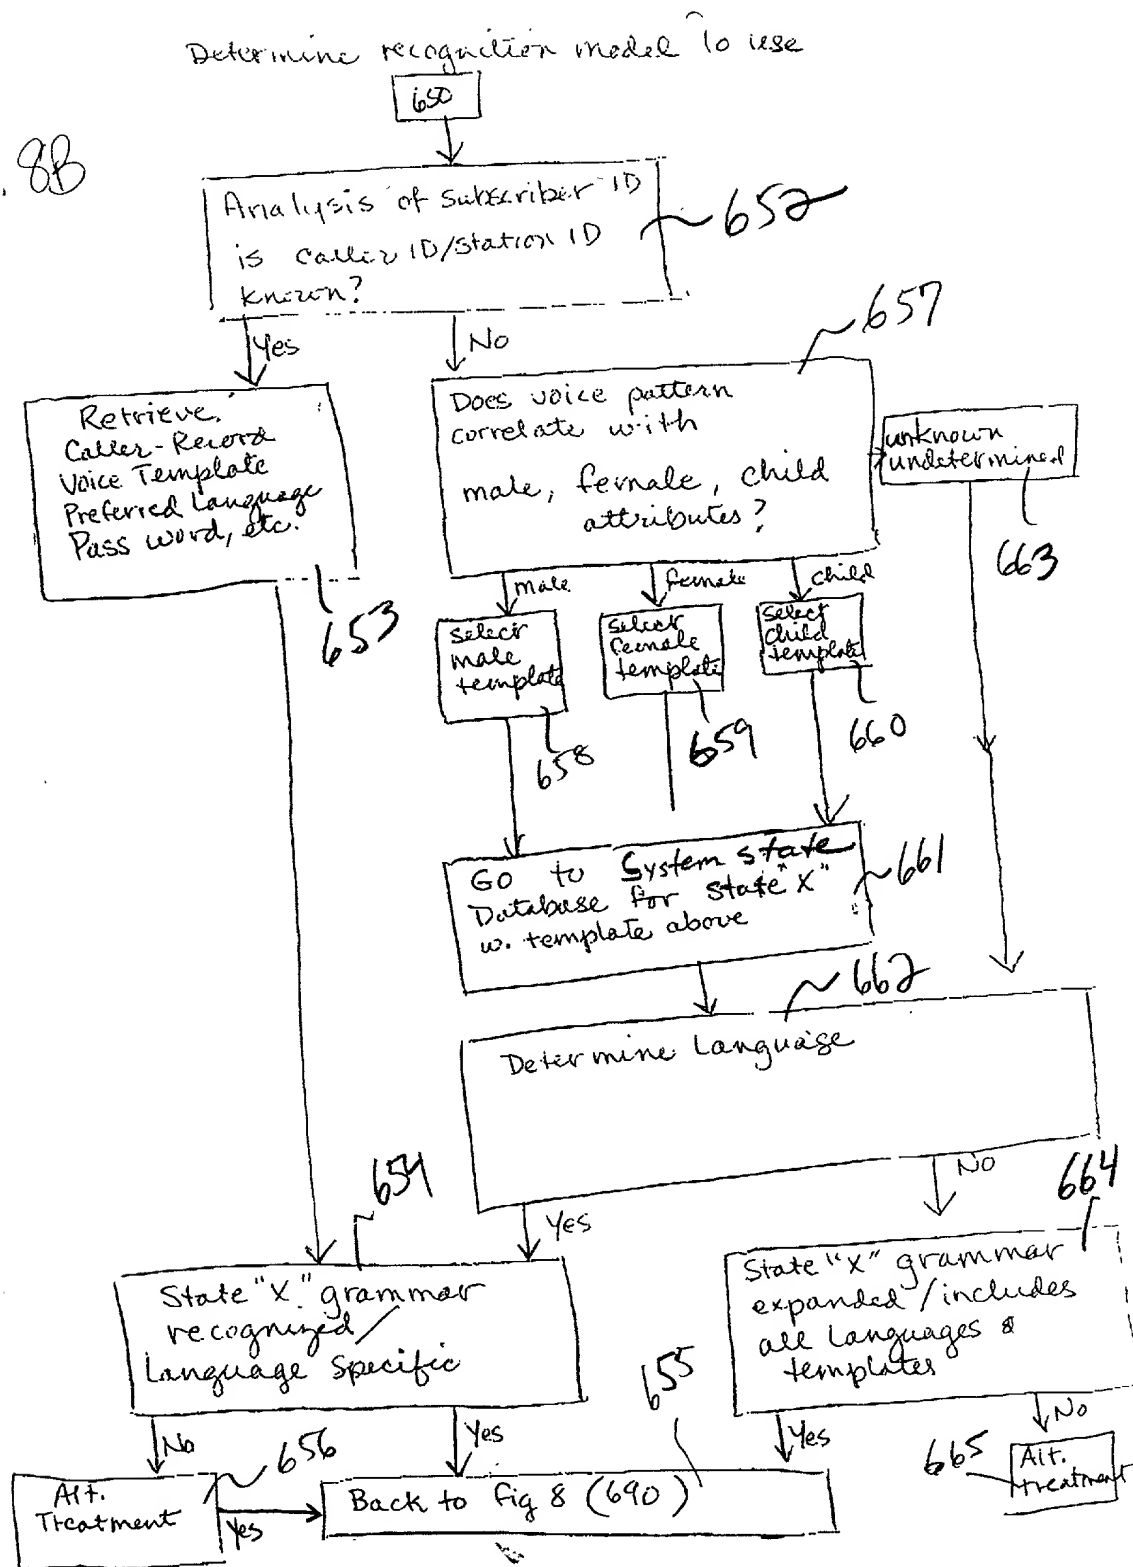 Determine recognition model to use
650
8B
Analysis of subscriber ID
is caller ID/station ID
known?
652
Yes
No
657
Retrieve.
Caller-Record
Voice Template
Preferred Language
Pass word, etc.
653
Does voice pattern
correlate with
male, female, child
attributes?
unknown
undetermined
663
male
female
child
select
male
template
select
female
template
select
child
template
658
659
660
Go to System state
Database for State "X"
w. template above
661
662
Determine Language
Yes
No
654
664
State "X" grammar
recognized/
Language Specific
State "X" grammar
expanded / includes
all Languages &
templates
655
No
Yes
Yes
No
656
665
Alt.
Treatment
Yes
Back to fig 8 (690)
Alt.
treatment